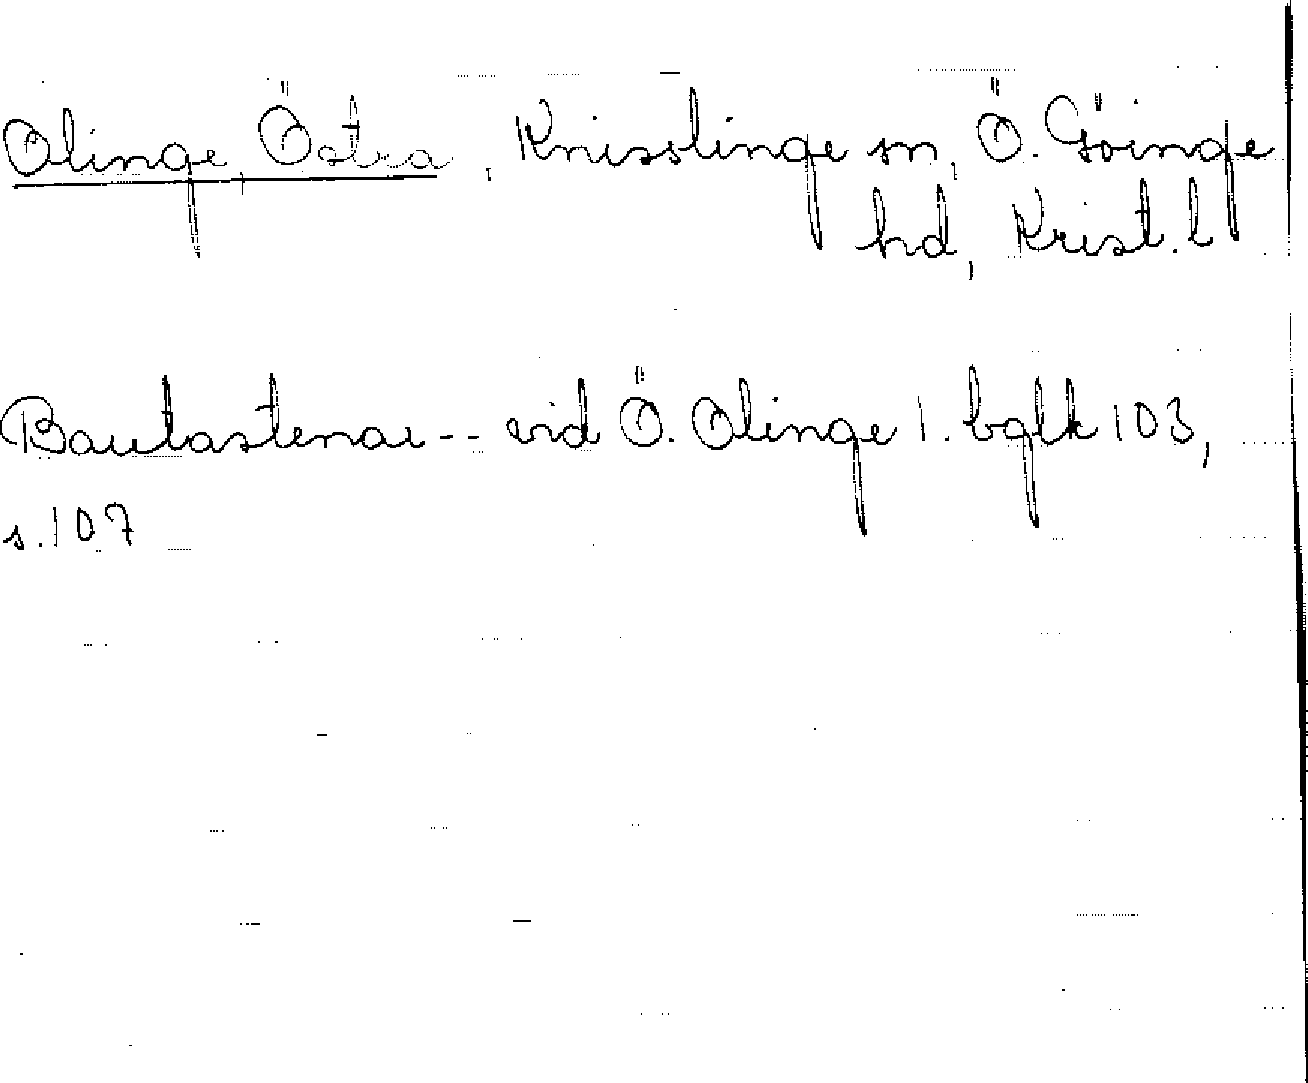 Olinge, Östra, Knisslinge sn, Ö. Göinge
hd, Krist. l
Bautastenar -- vid Ö. Olinge 1. bglk 103,
s. 107